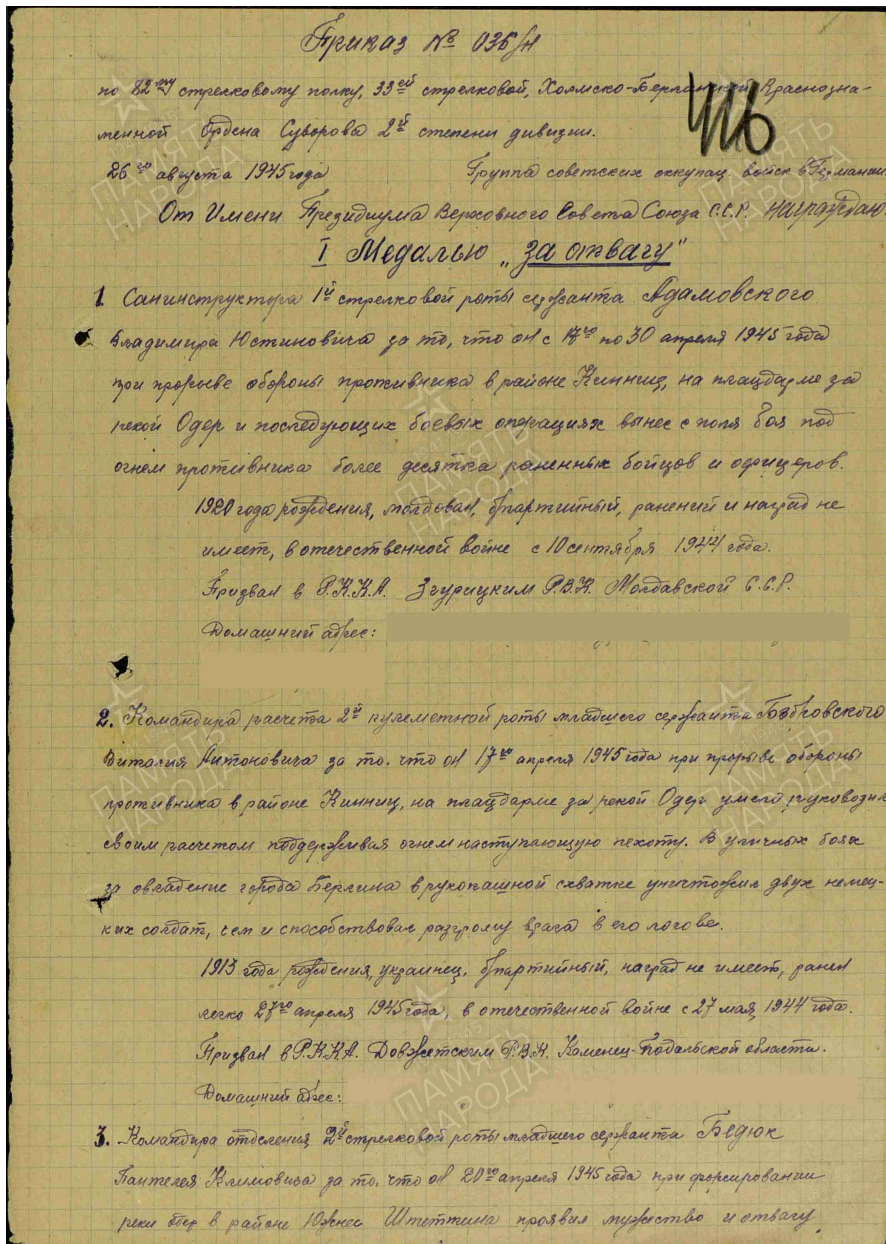 Приказ № 036/н
по 82му стрелковому полку, 33ей стрелковой, Холмско-Берлинской Краснозна-
менной Ордена Суворова 2й степени дивизии.
416
26го августа 1945 года Группа советских оккупац. войск в Германии.
От Имени Президиума Верховного Совета Союза С.С.Р. награждаю:
I Медалью „За отвагу"
1. Санинструктора 1й стрелковой роты сержанта Адамовского
Владимира Юстиновича за то, что он с 17го по 30 апреля 1945 года
при прорыве обороны противника в районе Кинниц, на плацдарме за
рекой Одер и последующих боевых операциях вынес с поля боя под
огнем противника более десятка раненных бойцов и офицеров.
1920 года рождения, молдован, б/партийный, ранений и наград не
имеет, в отечественной войне с 10 сентября 1944 года.
Призван в Р.К.К.А. Згурицким Р.В.К. Молдавской С.С.Р.
Домашний адрес:
2. Командира расчета 2й пулеметной роты младшего сержанта
Виталия Антоновича за то, что он 17го апреля 1945 года при прорыве обороны
противника в районе Кинниц, на плацдарме за рекой Одер умело руководил
своим расчетом поддерживая огнем наступающую пехоту. В уличных боях
за овладение города Берлина в рукопашной схватке уничтожил двух немец-
ких солдат, чем и способствовал разгрому врага в его логове.
1913 года рождения, украинец, б/партийный, наград не имеет, ранен
легко 27го апреля 1945 года, в отечественной войне с 27 мая, 1944 года.
Призван в Р.К.К.А. Довжетским Р.В.К. Каменец-Подольской области.
Домашний адрес:
3. Командира отделения 2й стрелковой роты младшего сержанта Бедюк
Пантелея Климовича за то, что он 20го апреля 1945 года при форсировании
реки Одер в районе Южнее Штеттина проявил мужество и отвагу
ПАМЯТЬ НАРОДА
ПАМЯТЬ НАРОДА
ПАМЯТЬ НАРОДА
ПАМЯТЬ НАРОДА
ПАМЯТЬ НАРОДА
ПАМЯТЬ НАРОДА